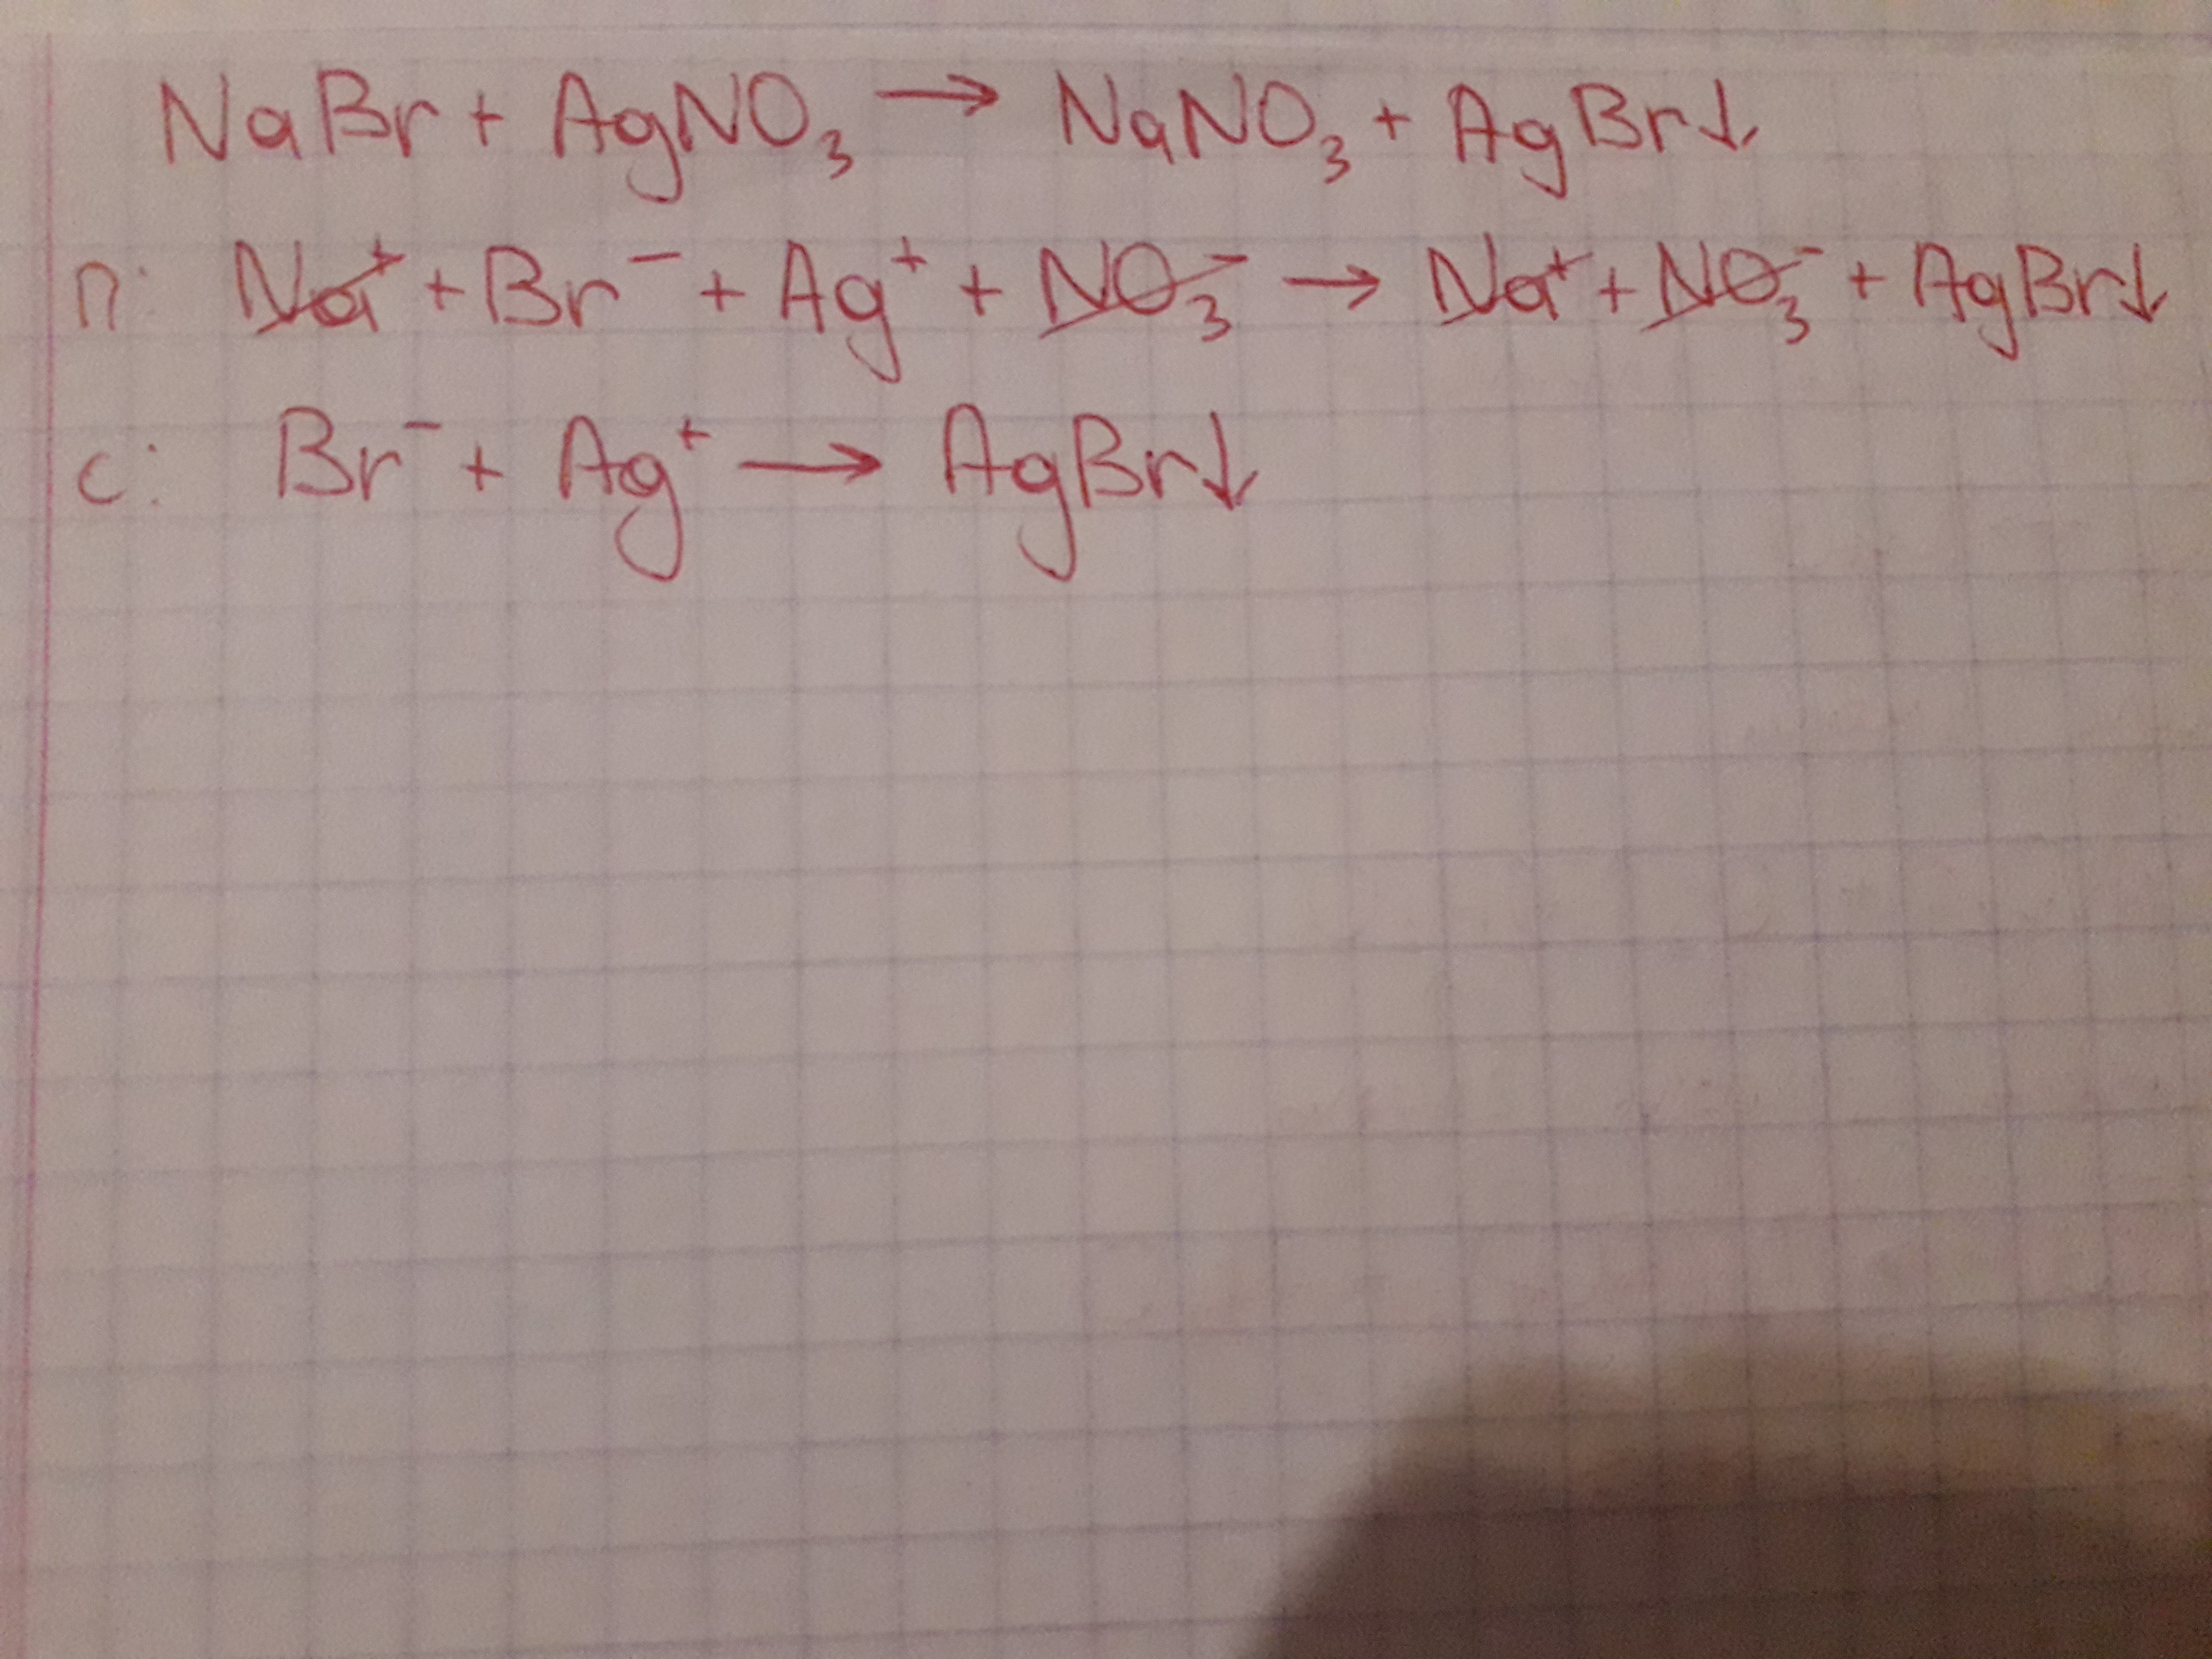 NaBr + AgNO₃ → NaNO₃ + AgBr↓
п: Na⁺ + Br⁻ + Ag⁺ + NO₃⁻ → Na⁺ + NO₃⁻ + AgBr↓
с: Br⁻ + Ag⁺ → AgBr↓